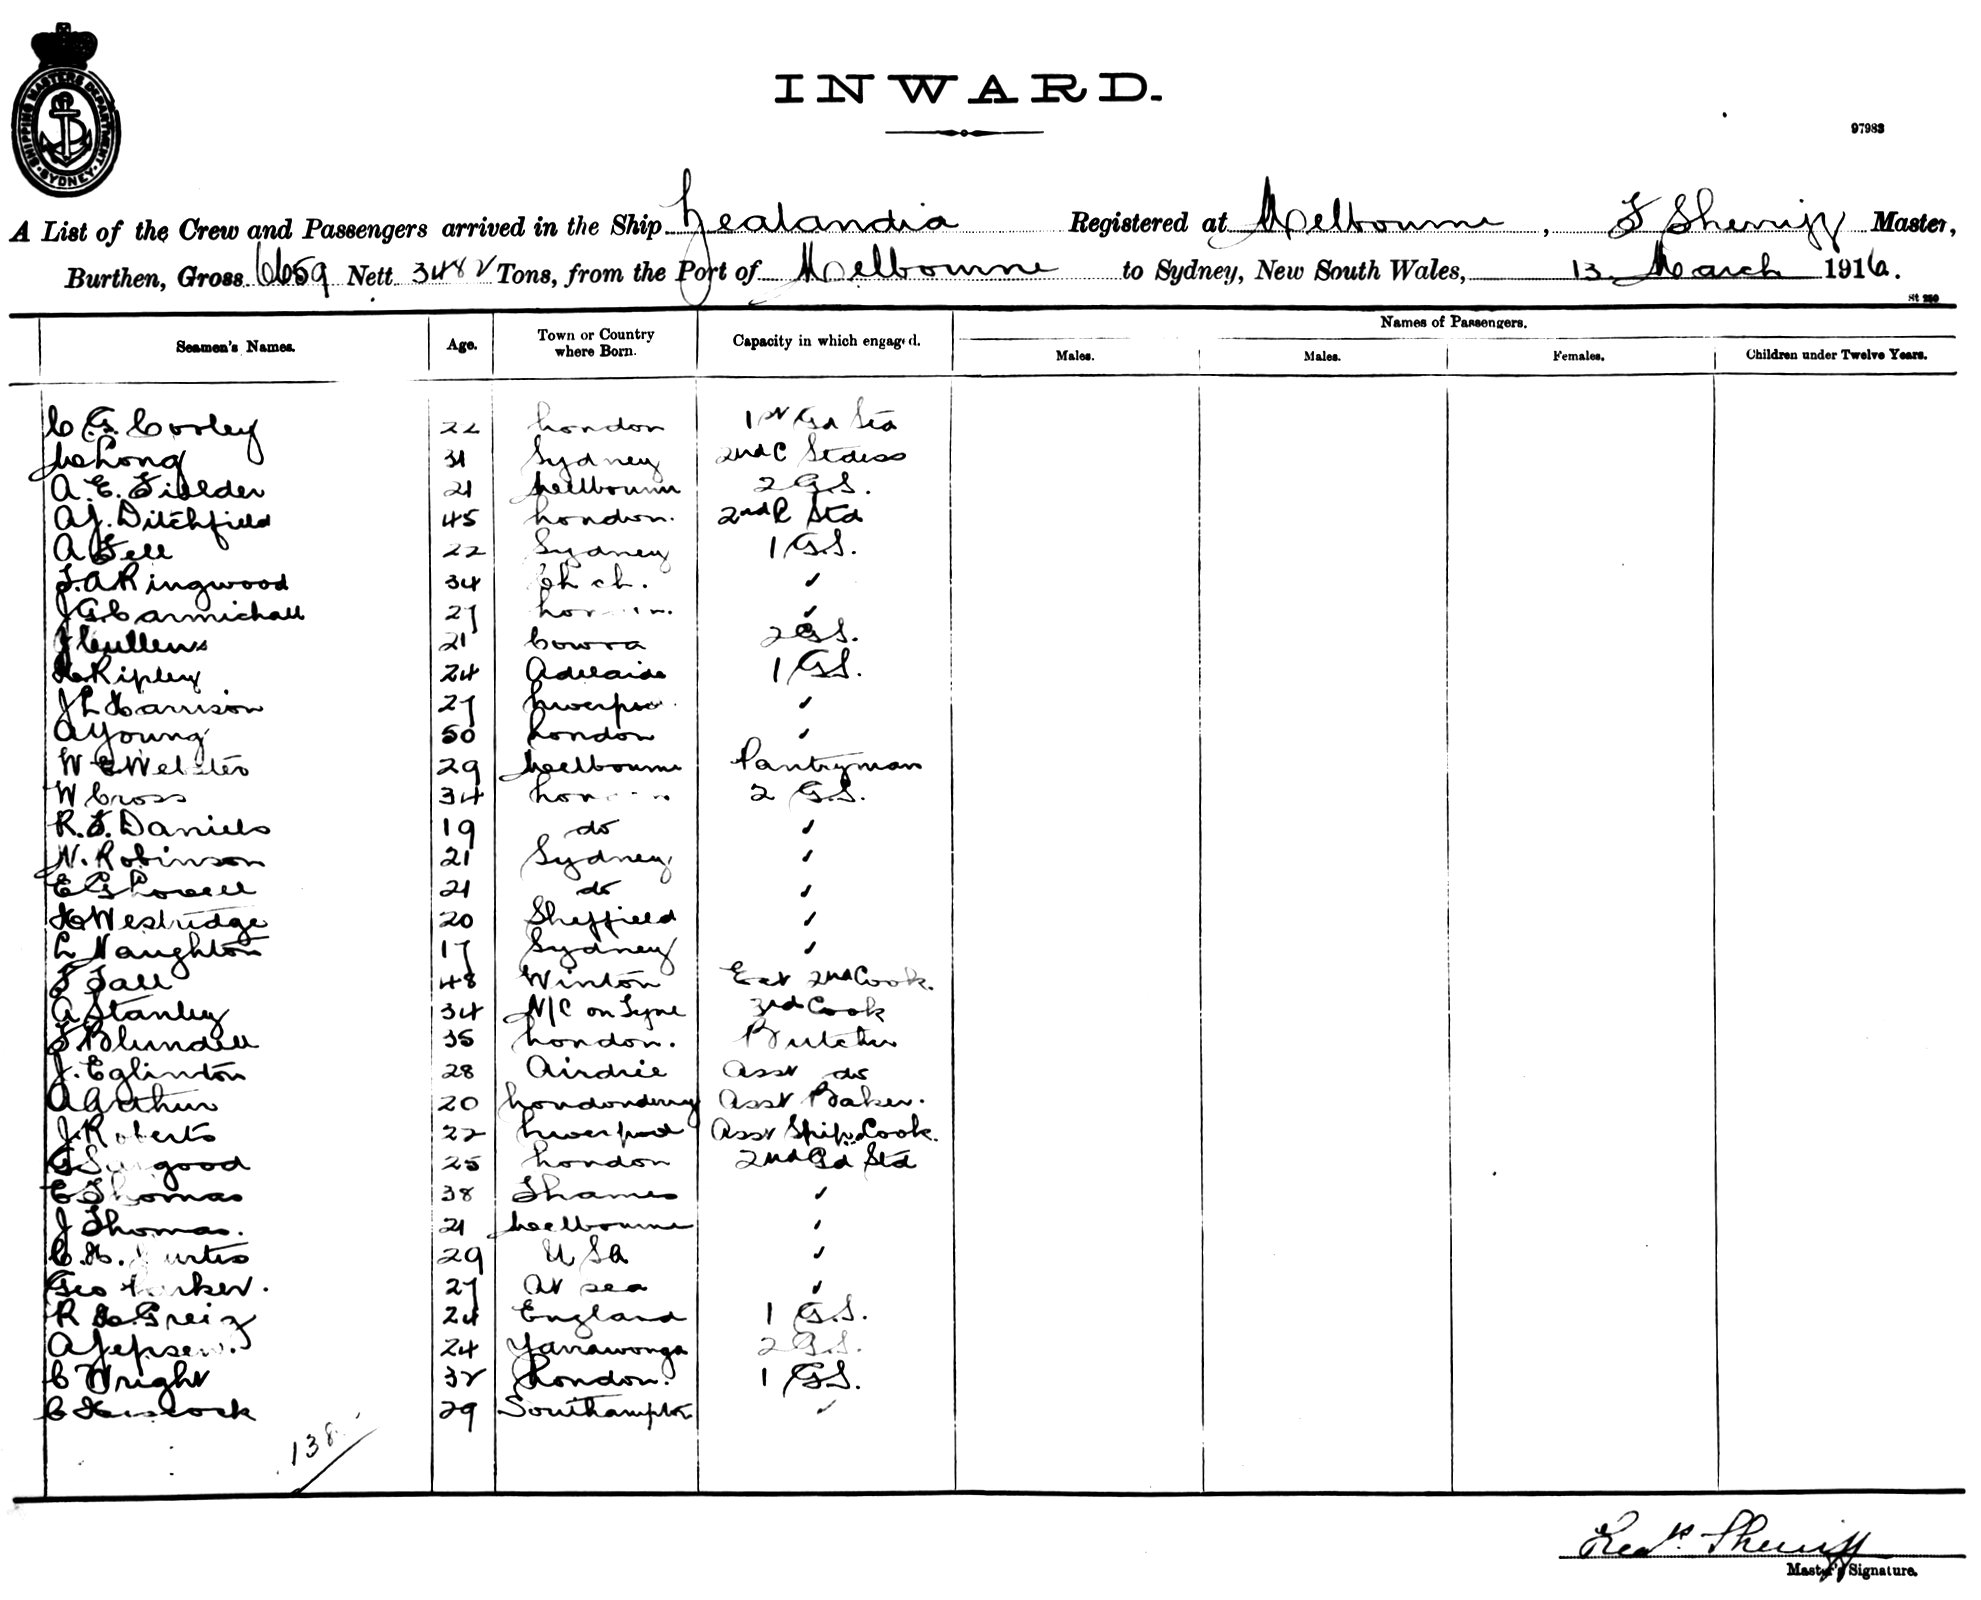 SHIPPING MASTERS DEPARTMENT SYDNEY
INWARD.
97983
A List of the Crew and Passengers arrived in the Ship Zealandia Registered at Melbourne, F Sherriff Master,
Burthen, Gross 6659 Nett 3482 Tons, from the Port of Melbourne to Sydney, New South Wales, 13 March 1916.
St 250
Seamen's Names. Age. Town or Country where Born. Capacity in which engaged. Names of Passengers.
Males. Males. Females. Children under Twelve Years.
C G. Corley 22 London 1st Gd Std
M Long 31 Sydney 2nd C Stdess
A. E. Fielder 21 Melbourne 2 G.S.
A J. Ditchfield 45 London. 2nd R Std
A Fell 22 Sydney 1 G.S.
F. A Ringwood 34 Ch ch. ✓
J G Carmichall 27 ✓
J Cullens 21 Cowra 2 G.S.
H Ripley 24 Adelaide 1 G.S.
J L Harrison 27 Liverpoo ✓
A Young 50 London ✓
W E Webster 29 Melbourne Pantryman
W Cross 34 2 G.S.
R. F. Daniels 19 do ✓
N. Robinson 21 Sydney ✓
E G Lovell 21 do ✓
H Westridge 20 Sheffield ✓
L Naughton 17 Sydney ✓
F Fall 48 Winton 2nd Cook.
A Stanley 34 N/C on Tyne 3rd Cook
F Blundell 35 London. Butcher
J. Eglinton 28 Airdrie Asst do
A Arthur 20 Londonderry Asst Baker.
J. Roberts 22 Liverpool Asst Ships Cook.
25 London 2nd Gd Std
E Thomas 38 Thames ✓
J Thomas. 21 Melbourne ✓
C. H. Curtis 29 U S A ✓
Geo Parker. 27 At sea ✓
R H. Greig 24 England 1 G.S.
A Jepsen. 24 Yarrawonga 2 G.S.
C Wright 32 London. 1 G.S.
C Hiscock 29 Southampton ✓
138
Fredk Sherriff
Master's Signature.